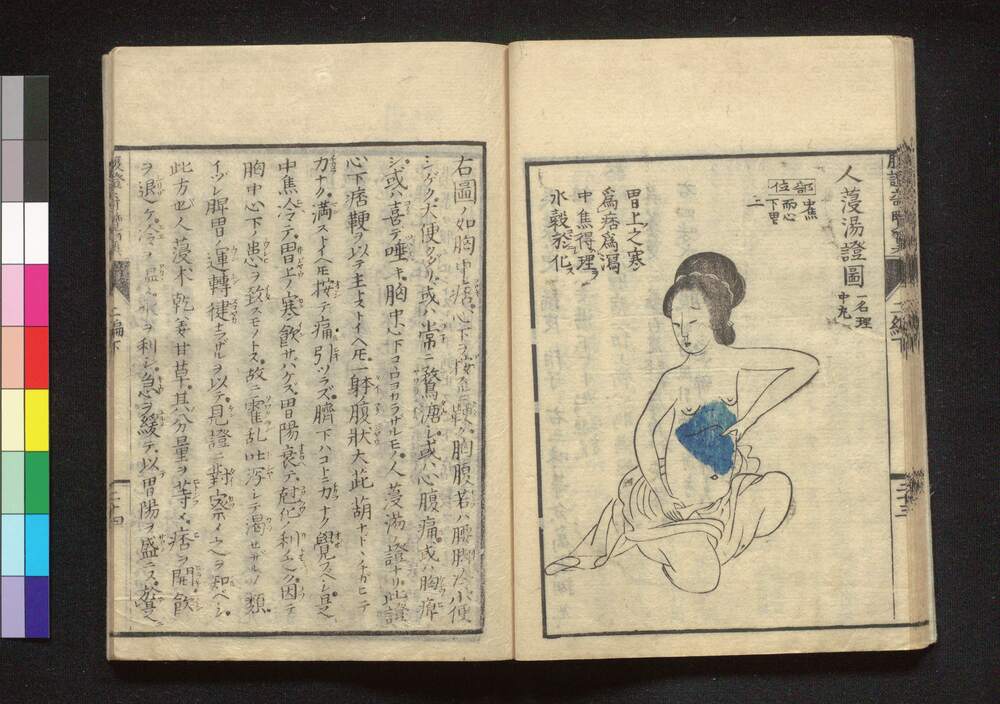 人蓡湯證圖
一名理
中丸
部位
中焦
而心
下里
二
胃上之寒
爲痞爲瀉
中焦得理
水穀於化
右圖ノ如胸中痞心下ヲ按
鞕ク胸腹若ハ腰脚冷小便
シゲク大便クダリ或ハ常ニ鶩溏シ或ハ心腹痛或ハ胸痺
シ或ハ喜テ唾キ胸中心下コヽロヨカラサルモノ人蓡湯ノ證ナリ此證
心下痞鞕ヲ以テ主トストイヘ𪜈一體腹狀大茈葫ナドヽチガヒテ
カナク満ストイヘ𪜈按テ痛引ツラズ臍下ハコトニ力ナク覺ヘシ是
中焦冷テ胃上ノ寒飲サバケズ胃陽衰テ尅化ノ利
因テ
胸中心下ノ患ヲ致スモノトス故ニ霍乱吐瀉シテ渇セサルノ類
イヅレ脾胃ノ運轉健ナラザルヲ以テ見證ニ對察
知ベシ
此方也人蓡朮乾姜甘草其分量ヲ等
痞ヲ開飲
ヲ退ケ冷ヲ温
水ヲ利シ急ヲ緩テ以胃陽ヲ盛ニス
二編下
二十四
二十三